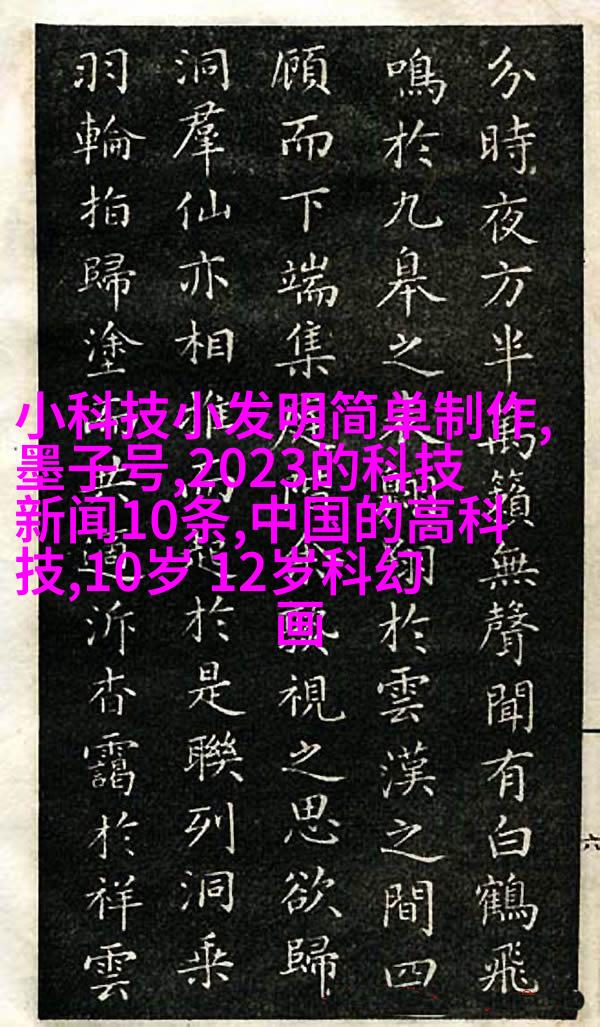 小科技小发明简单制作,
墨子号,2023的科技
新闻10条,中国的高科
技,10岁 12岁科幻
画
分時夜方半萬籟無聲聞有白鶴飛
鳴於九皋之翔於雲漢之間四
顧而下端集視之思欲歸
洞羣仙亦相推而於是聯列洞乘
羽輪指歸塗共泝杳靄於祥雲
六